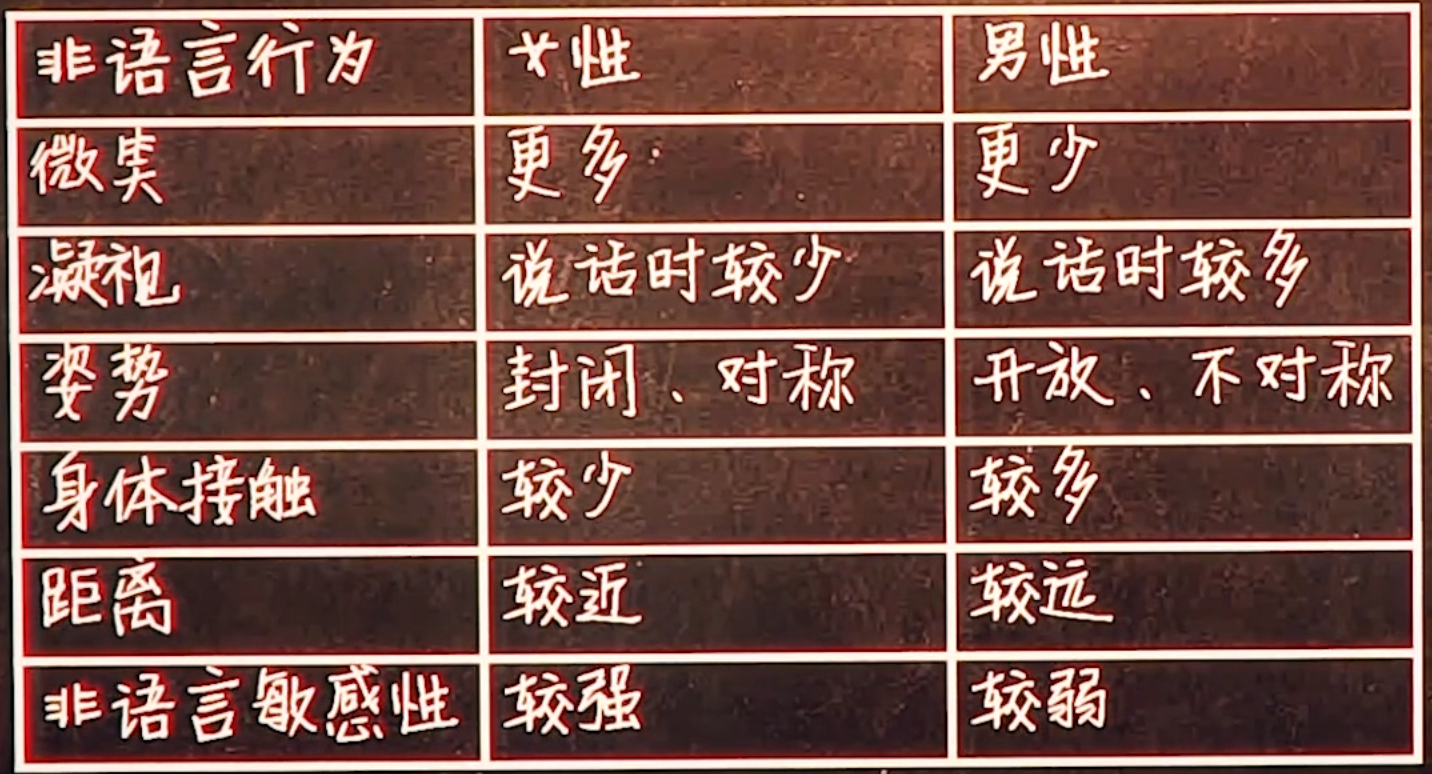 非语言行为 女性 男性
微笑 更多 更少
凝视 说话时较少 说话时较多
姿势 封闭、对称 开放、不对称
身体接触 较少 较多
距离 较近 较远
非语言敏感性 较强 较弱